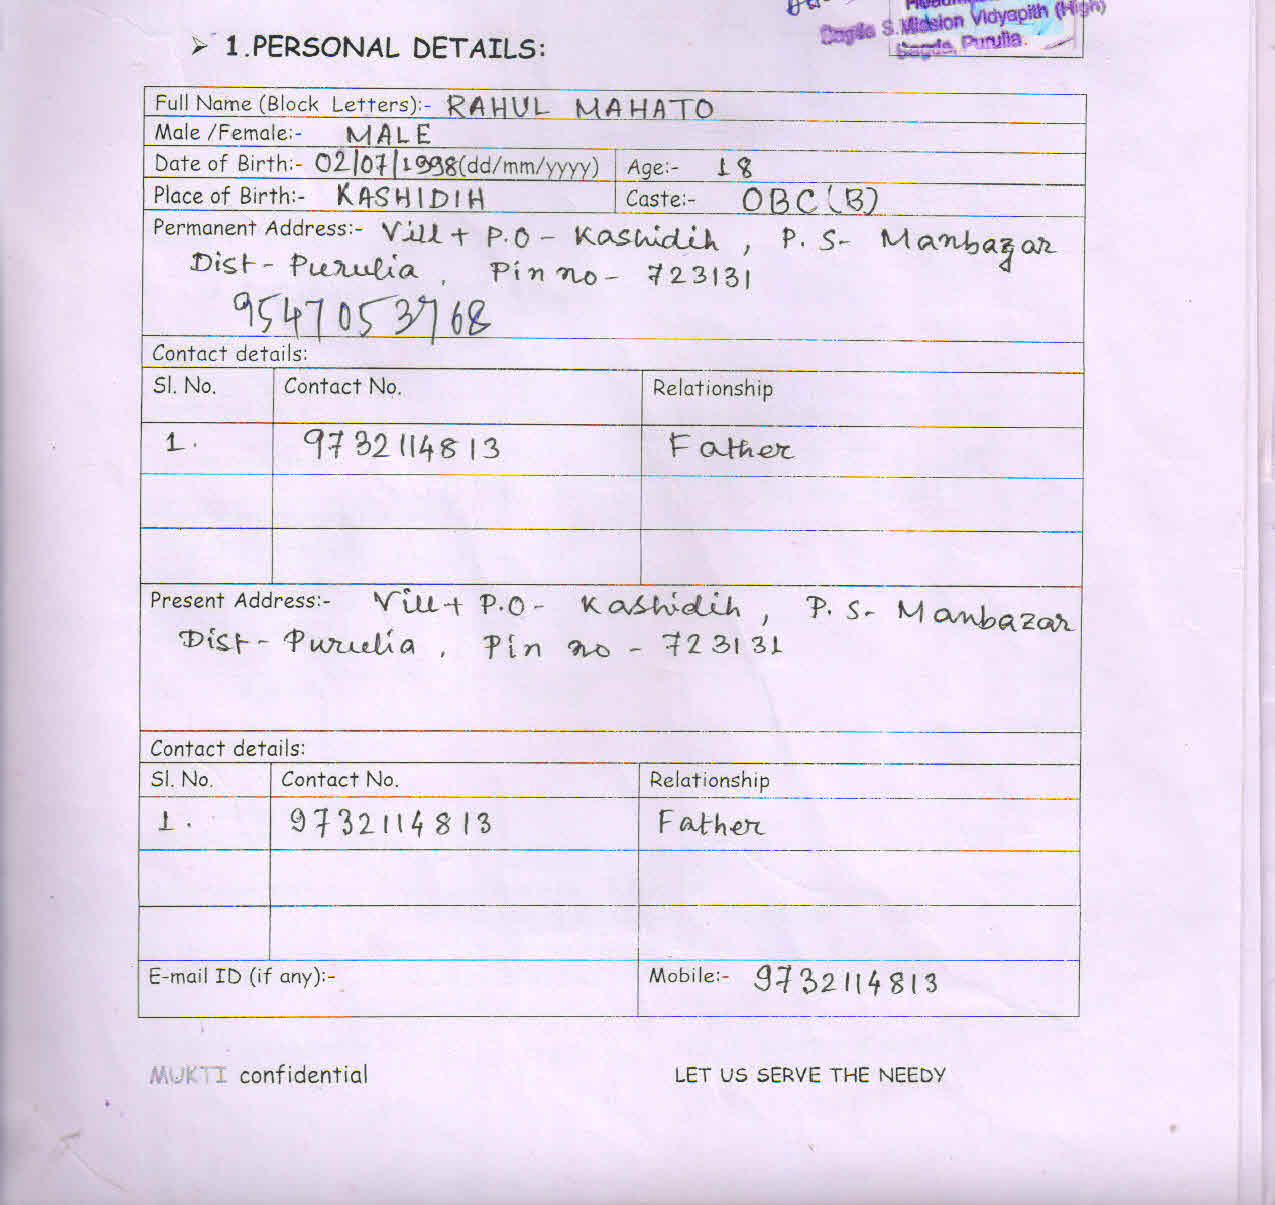 S. Mission Vidyapith (High)
Purulia.
➢ 1.PERSONAL DETAILS:
Full Name (Block Letters):- RAHUL MAHATO
Male /Female:- MALE
Date of Birth:- 02/07/1998(dd/mm/yyyy) Age:- 18
Place of Birth:- KASHIDIH Caste:- OBC(B)
Permanent Address:- Vill + P.O - Kashidih , P. S- Manbazar
Dist - Purulia , Pin no - 723131
9547053768
Contact details:
Sl. No. Contact No. Relationship
1. 9732114813 Father
Present Address:- Vill + P.O - Kashidih , P. S- Manbazar
Dist - Purulia , Pin no - 723131
Contact details:
Sl. No. Contact No. Relationship
1. 9732114813 Father
E-mail ID (if any):- Mobile:- 9732114813
MUKTI confidential LET US SERVE THE NEEDY